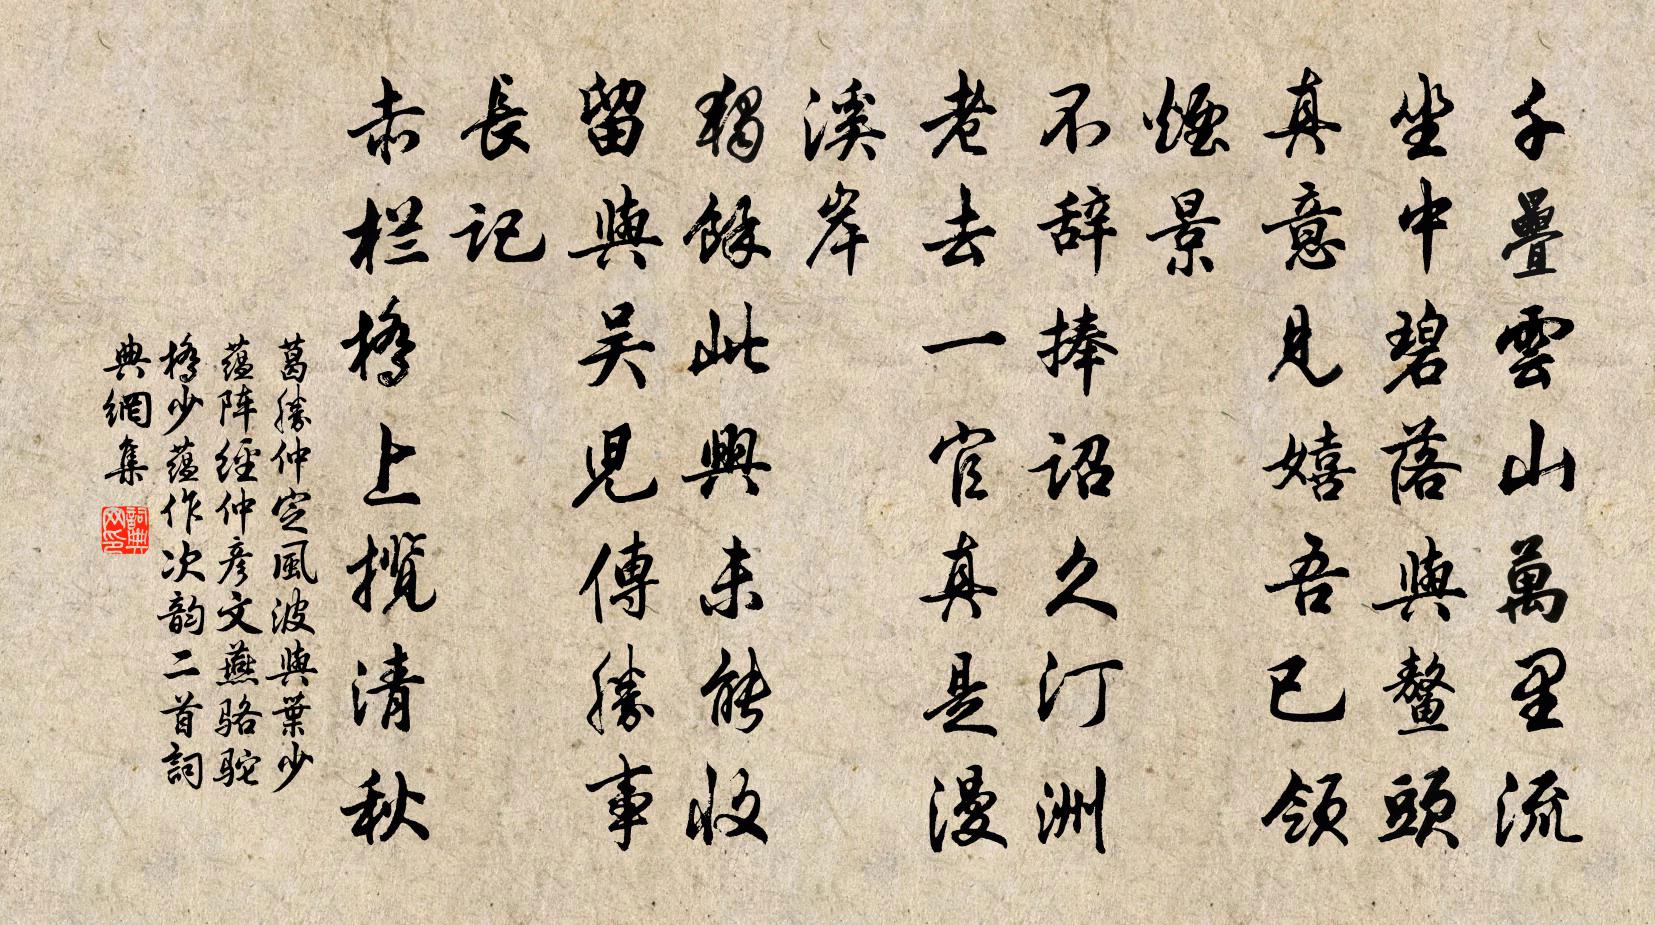 千疊雲山萬里流
坐中碧落與鰲頭
真意見嬉吾已領
煙景
不辞捧詔久汀洲
老去一官真是漫
溪岸
獨餘此興未能收
留與吴兒傳勝事
長記
赤栏橋上揽清秋
葛勝仲定風波與葉少
蕴阵經仲彦文燕骆驼
橋少蕴作次韵二首詞
典網集
詞典网印